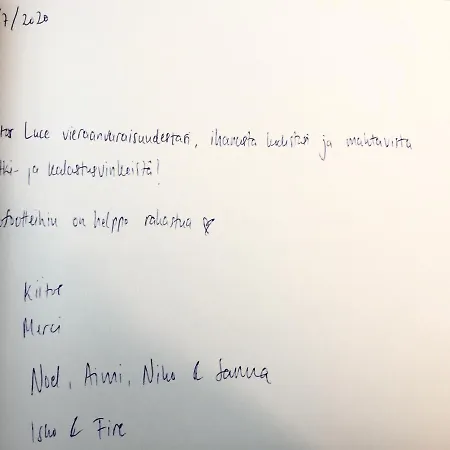 /7/2020
Luce vieraanvaraisuudestasi, ihanasta kodistasi ja mahtavista
- ja kalastusvinkeistä!
on helppo rakastua
Kiitos
Merci
Noel, Aimi, Niko & Sanna
& Fire